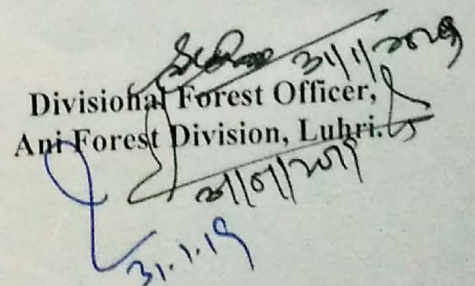 31/1/2019
Divisional Forest Officer,
Ani Forest Division, Luhri.
31.1.19